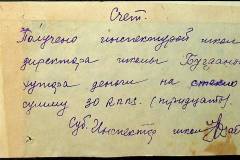 Счет.
Получено инспектурой школ
директора школы
хутора деньги на стекло
сумму 30 R.M.S. (тридцать).
Суб. Инспектор школ